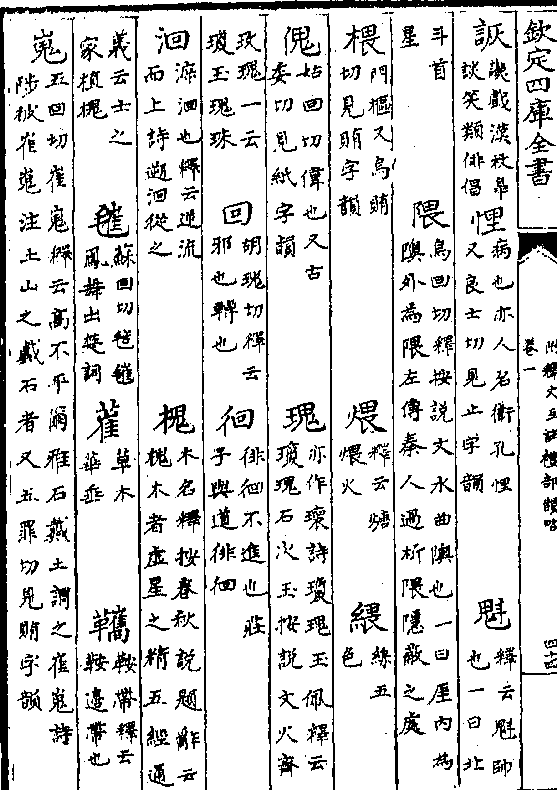 欽定四庫全書
附釋文互註禮部韻略
卷一
詼譏戲漢枚皋談笑類俳倡 悝病也亦人名衛孔悝又良士切見止字韻 魁釋云魁帥也一曰北
斗首星 隈烏回切釋按說文水曲隩也一曰厓内為隩外為隈左傳秦人過析隈隱蔽之處
椳門樞又烏賄切見賄字韻 煨釋云煻煨火 絲五色
傀姑回切偉也又古委切見紙字韻 瑰亦作瓌詩瓊瑰玉佩釋云瓊瑰石次玉按說文火齊
玫瑰一云瓊玉瑰珠 回胡瑰切釋云邪也轉也 徊徘徊不進也莊子與道徘徊
洄㴑洄也釋云逆流而上詩遡洄從之 槐木名釋按春秋說題辭云槐木者虛星之精五經通
義云士之冢植槐 毸蘇回切毰毸鳳舞出楚詞 草木華垂 鞍帶釋云鞍邊帶也
嵬五回切崔嵬釋云高不平爾雅石戴土謂之崔嵬詩陟彼崔嵬注土山之戴石者又五罪切見賄字韻